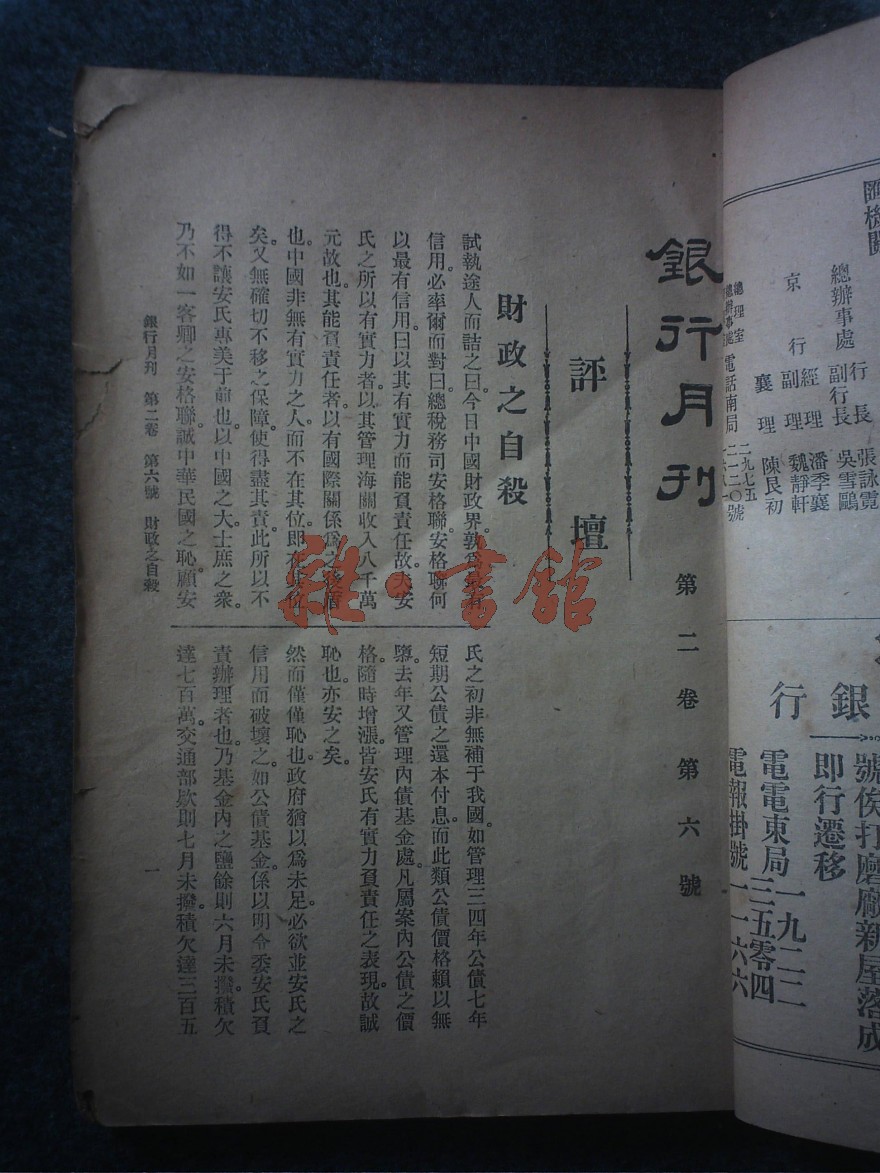 銀行月刊 第二卷第六號
評壇
財政之自殺
試執途人而詰之曰。今日中國財政界孰爲最有
信用。必率爾而對曰。總稅務司安格聯。安格聯何
以最有信用。曰以其有實力而能負責任故。夫安
氏之所以有實力者。以其管理海關收入八千萬
元故也。其能負責任者。以有國際關係爲之後盾
也。中國非無有實力之人。而不在其位。即在其位
矣。又無確切不移之保障。使得盡其責。此所以不
得不讓安氏專美于前也。以中國之大。士庶之衆。
乃不如一客卿之安格聯。誠中華民國之恥。顧安
氏之初非無補于我國。如管理三四年公債七年
短期公債之還本付息。而此類公債價格賴以無
墮。去年又管理內債基金處。凡屬案內公債之價
格。隨時增漲。皆安氏有實力負責任之表現。故誠
恥也。亦安之矣。
然而僅僅恥也。政府猶以爲未足。必欲並安氏之
信用而破壞之。如公債基金。係以明令委安氏負
責辦理者也。乃基金內之鹽餘則六月未撥。積欠
達七百萬。交通部款則七月未撥。積欠達三百五
銀行月刊 第二卷 第六號 財政之自殺
一
匯機關
總辦事處 行長 張詠霓
副行長 吳雪鷗
京行 經理 潘季襄
副理 魏靜軒
襄理 陳艮初
總理室
電話南局
二九七五
二一二〇號
銀行
號俟打磨廠新屋落成
即行遷移
電電東局
一九二二
三五零四
電報掛號一一六六
雜·書館